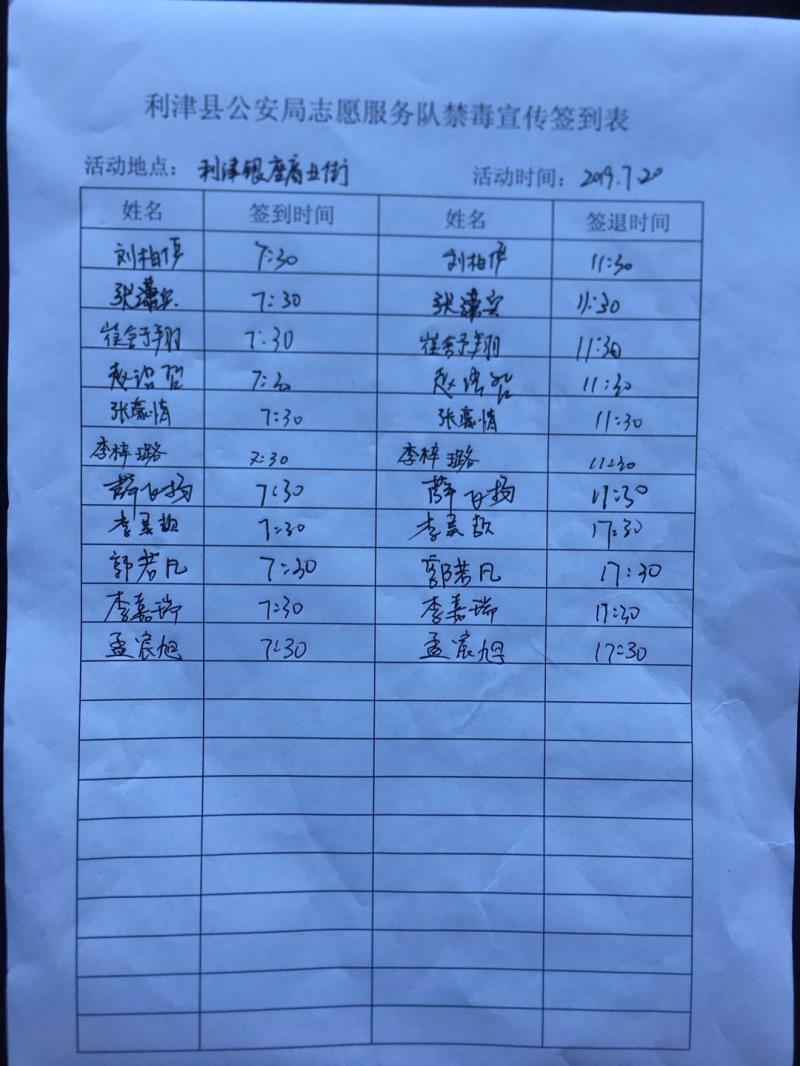 利津县公安局志愿服务队禁毒宣传签到表
活动地点： 利津银座商业街 活动时间：2019.7.20
姓名 签到时间 姓名 签退时间
刘相停 7:30 刘相停 11:30
张潇宾 7:30 张潇宾 11:30
崔舒翔 7:30 崔舒翔 11:30
赵 7:30 赵 11:30
张嘉情 7:30 张嘉情 11:30
李梓璐 7:30 李梓璐 11:30
薛白杨 7:30 薛白杨 11:30
李昊颖 7:30 李昊颖 17:30
郭若凡 7:30 郭若凡 17:30
李嘉瑞 7:30 李嘉瑞 17:30
孟宸旭 7:30 孟宸旭 17:30